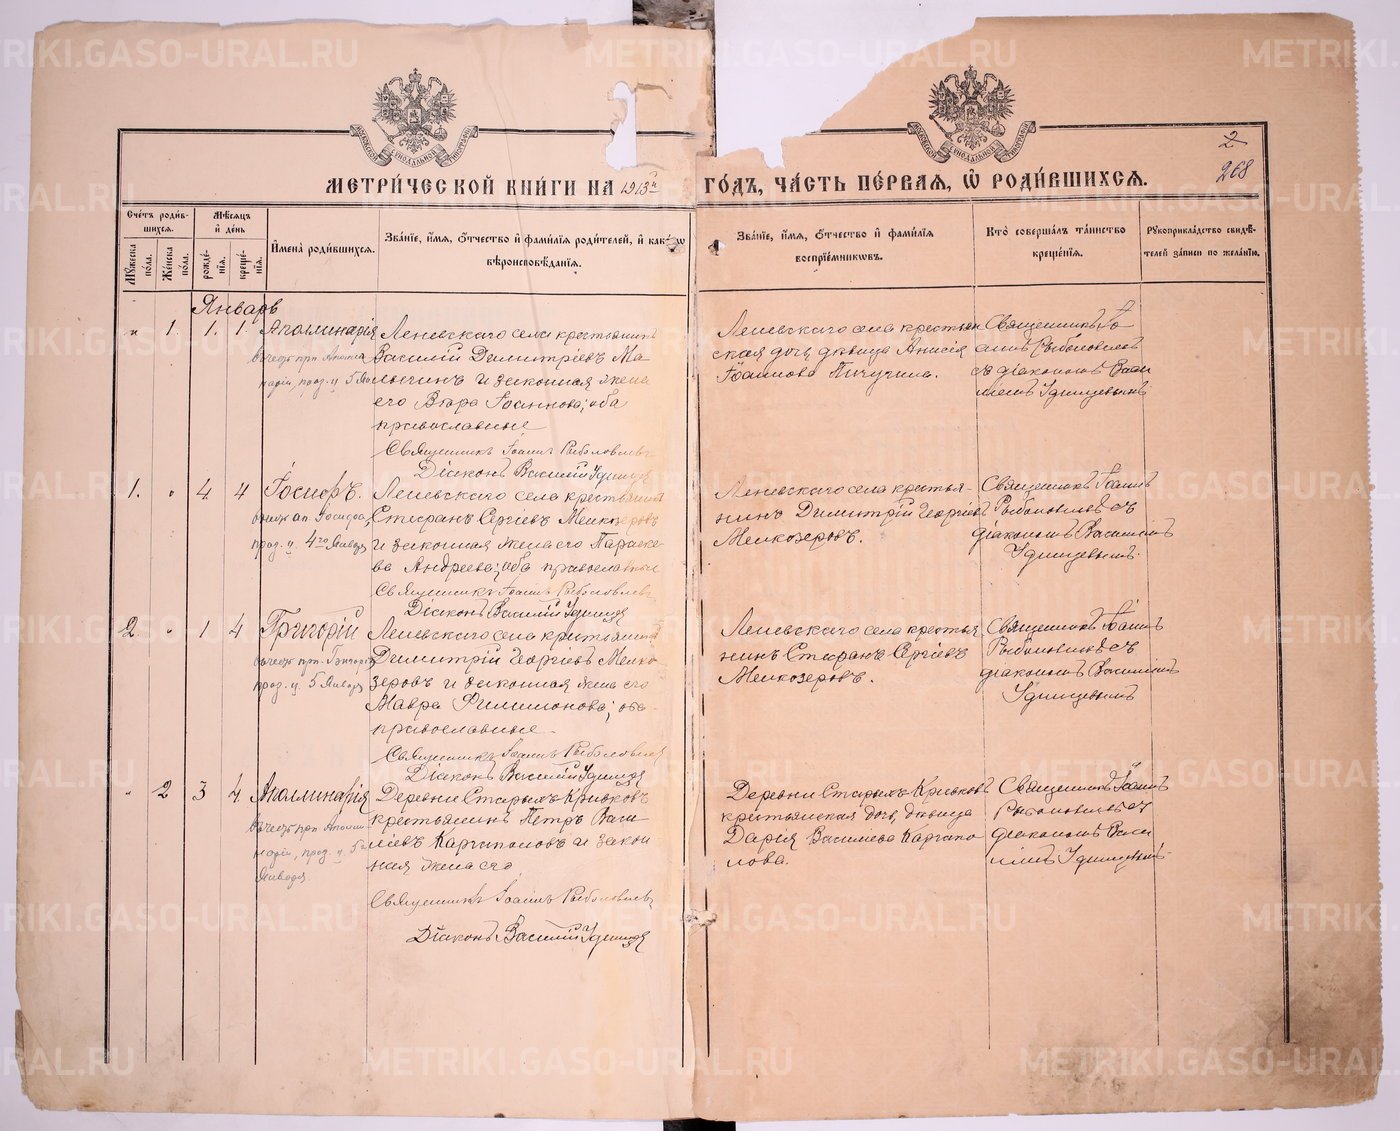 METRIKI.GASO-URAL.RU
МОСКОВСКОЙ СѴНОДАЛЬНОЙ ТИПОГРАФІИ
МОСКОВСКОЙ СѴНОДАЛЬНОЙ ТИПОГРАФІИ
2
268
МЕТРИ́ЧЕСКОЙ КНИ́ГИ НА 1913й ГО́ДЪ, ЧА́СТЬ ПЕ́РВАЯ, Ѽ РОДИ́ВШИХСЯ.
Сче́тъ роди́вшихся.
Мꙋ́жеска по́ла.
Же́нска по́ла.
Мѣ́сяцъ и҆ де́нь
рожде́нїя.
креще́нїя.
И҆мена̀ роди́вшихся.
Зва́нїе, и҆́мя, ѻ҆́тчество и҆ фами́лїя роди́телей, и҆ како́гѡ
вѣроисповѣ́данїя.
Зва́нїе, и҆́мя, ѻ҆́тчество и҆ фами́лїя
воспрїе́мникѡвъ.
Кто̀ соверша́лъ та́инство
креще́нїя.
Рꙋкоприкла́дство свидѣ́-
телей за́писи по жела́нїю.
Январь
" 1. 1. 1
Аполлинарія
въ честь прп. Аполли
нарій, празд. ц. 5 Янв
Леневскаго села крестьянинъ
Василій Димитріевъ Ма
и законная жена
его Вѣра Іоаннова; оба
православные
Священникъ Іоаннъ Рыболовлевъ
Діаконъ Василій Удинцевъ
Леневскаго села крестьян
ская дочь девица Анисія
Іоаннова Пичугина.
Священникъ Іо
аннъ Рыболовлевъ
съ діакономъ Васи
ліемъ Удинцевымъ
1. " 4 4
Іосифъ.
въ честь ап. Іосифа,
празд. ц. 4го Января
Леневскаго села крестьянинъ
Стефанъ Сергіевъ Мелкозеровъ
и законная жена его Параске
ва Андреева; оба православные
Священникъ Іоаннъ Рыболовлевъ
Діаконъ Василій Удинцев
Леневскаго села крестья-
нинъ Димитрій Георгіевъ
Мелкозеровъ.
Священникъ Іоаннъ
Рыболовлевъ съ
діакономъ Василіемъ
Удинцевымъ.
2. " 1 4
Григорій
въ честь прп. Григорія
празд. ц. 5 Января
Леневскаго села крестьянинъ
Димитрій Георгіевъ Мелко-
зеровъ и законная жена его
Мавра Филимонова; оба
православные
Священникъ Іоаннъ Рыболовлев
Діаконъ Василій Удинцев
Леневскаго села крестья
нинъ Стефанъ Сергіевъ
Мелкозеровъ.
Священникъ Іоаннъ
Рыболовлевъ съ
діакономъ Василіемъ
Удинцевымъ
" 2 3 4
Аполлинарія
въ честь прп. Аполли-
нарій, празд. ц. 5
Января.
Деревни Старыхъ Кривковъ
крестьянинъ Петръ Васи
ліевъ Каргаполовъ и закон
ная жена его
Священникъ Іоаннъ Рыболовлевъ
Діаконъ Василій Удинцев
Деревни Старыхъ Кривковъ
крестьянская дочь, девица
Дарія Василіева Каргапо
лова.
Священникъ Іоаннъ
Рыболовлевъ съ
діакономъ Васи
ліемъ Удинцевымъ